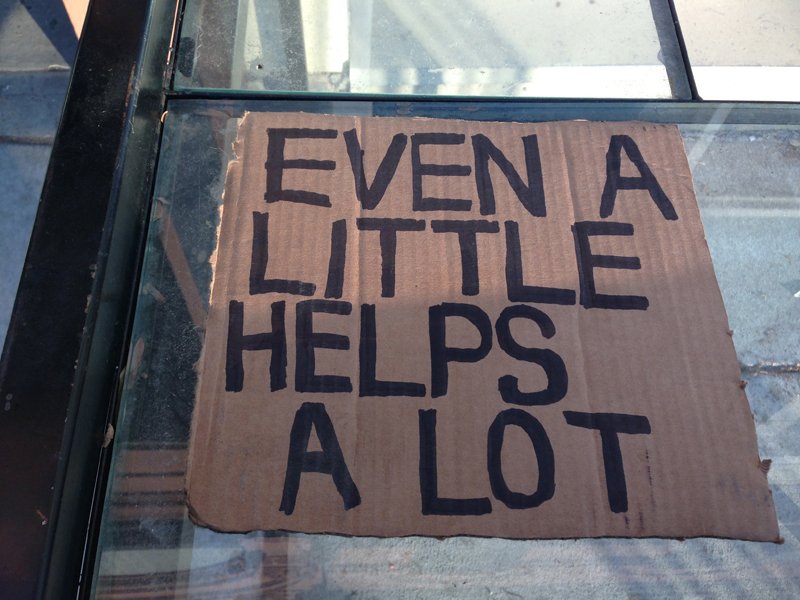 EVEN A
LITTLE
HELPS
A LOT